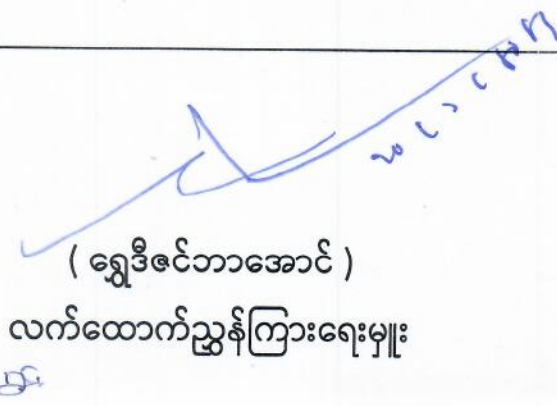 ( ရွှေဒီဇင်ဘာအောင် )
လက်ထောက်ညွှန်ကြားရေးမှူး